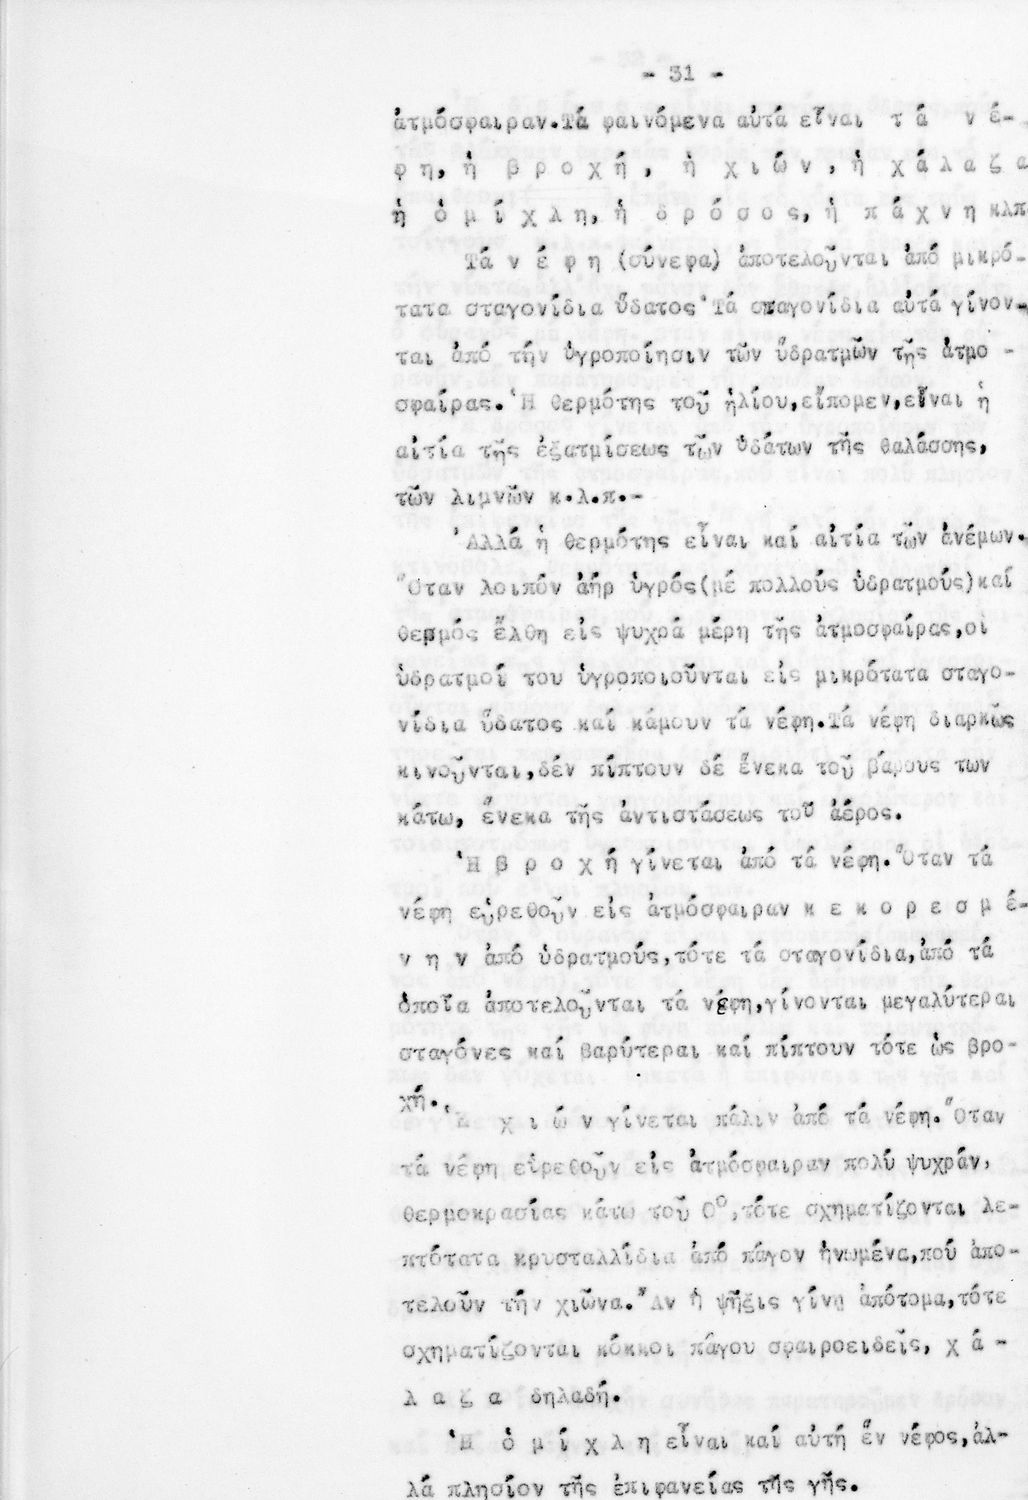 - 31 -
ἀτμόσφαιραν.Τά φαινόμενα αὐτά εἶναι τ ά ν έ-
φ η, ἡ β ρ ο χ ή, ἡ χ ι ώ ν, ἡ χ ά λ α ζ α
ἡ ὁ μ ί χ λ η, ἡ δ ρ ό σ ο ς, ἡ π ά χ ν η κλπ
Τά ν έ φ η (σύνεφα) ἀποτελοῦνται ἀπό μικρό-
τατα σταγονίδια ὕδατος Τά σταγονίδια αὐτά γίνον-
ται ἀπό τήν ὑγροποίησιν τῶν ὑδρατμῶν τῆς ἀτμο -
σφαίρας. Ἡ θερμότης τοῦ ἡλίου,εἴπομεν,εἶναι ἡ
αἰτία τῆς ἐξατμίσεως τῶν ὑδάτων τῆς θαλάσσης,
τῶν λιμνῶν κ.λ.π.-
Ἀλλά ἡ θερμότης εἶναι καί αἰτία τῶν ἀνέμων.
Ὅταν λοιπόν ἀήρ ὑγρός(μέ πολλούς ὑδρατμούς)καί
θερμός ἔλθη εἰς ψυχρά μέρη τῆς ἀτμοσφαίρας,οἱ
ὑδρατμοί του ὑγροποιοῦνται εἰς μικρότατα σταγο-
νίδια ὕδατος καί κάμουν τά νέφη.Τά νέφη διαρκῶς
κινοῦνται,δέν πίπτουν δέ ἕνεκα τοῦ βάρους των
κάτω, ἕνεκα τῆς ἀντιστάσεως τοῦ ἀέρος.
Ἡ β ρ ο χ ή γίνεται ἀπό τά νέφη.Ὅταν τά
νέφη εὑρεθοῦν εἰς ἀτμόσφαιραν κ ε κ ο ρ ε σ μ έ-
ν η ν ἀπό ὑδρατμούς,τότε τά σταγονίδια,ἀπό τά
ὁποῖα ἀποτελοῦνται τά νέφη,γίνονται μεγαλύτεραι
σταγόνες καί βαρύτεραι καί πίπτουν τότε ὡς βρο-
χή.
Ἡ χ ι ώ ν γίνεται πάλιν ἀπό τά νέφη.Ὅταν
τά νέφη εὑρεθοῦν εἰς ἀτμόσφαιραν πολύ ψυχράν,
θερμοκρασίας κάτω τοῦ 0°,τότε σχηματίζονται λε-
πτότατα κρυσταλλίδια ἀπό πάγον ἡνωμένα,πού ἀπο-
τελοῦν τήν χιῶνα. Ἄν ἡ ψῆξις γίνη ἀπότομα,τότε
σχηματίζονται κόκκοι πάγου σφαιροειδεῖς, χ ά -
λ α ζ α δηλαδή.
Ἡ ὁ μ ί χ λ η εἶναι καί αὐτή ἕν νέφος,ἀλ-
λά πλησίον τῆς ἐπιφανείας τῆς γῆς.